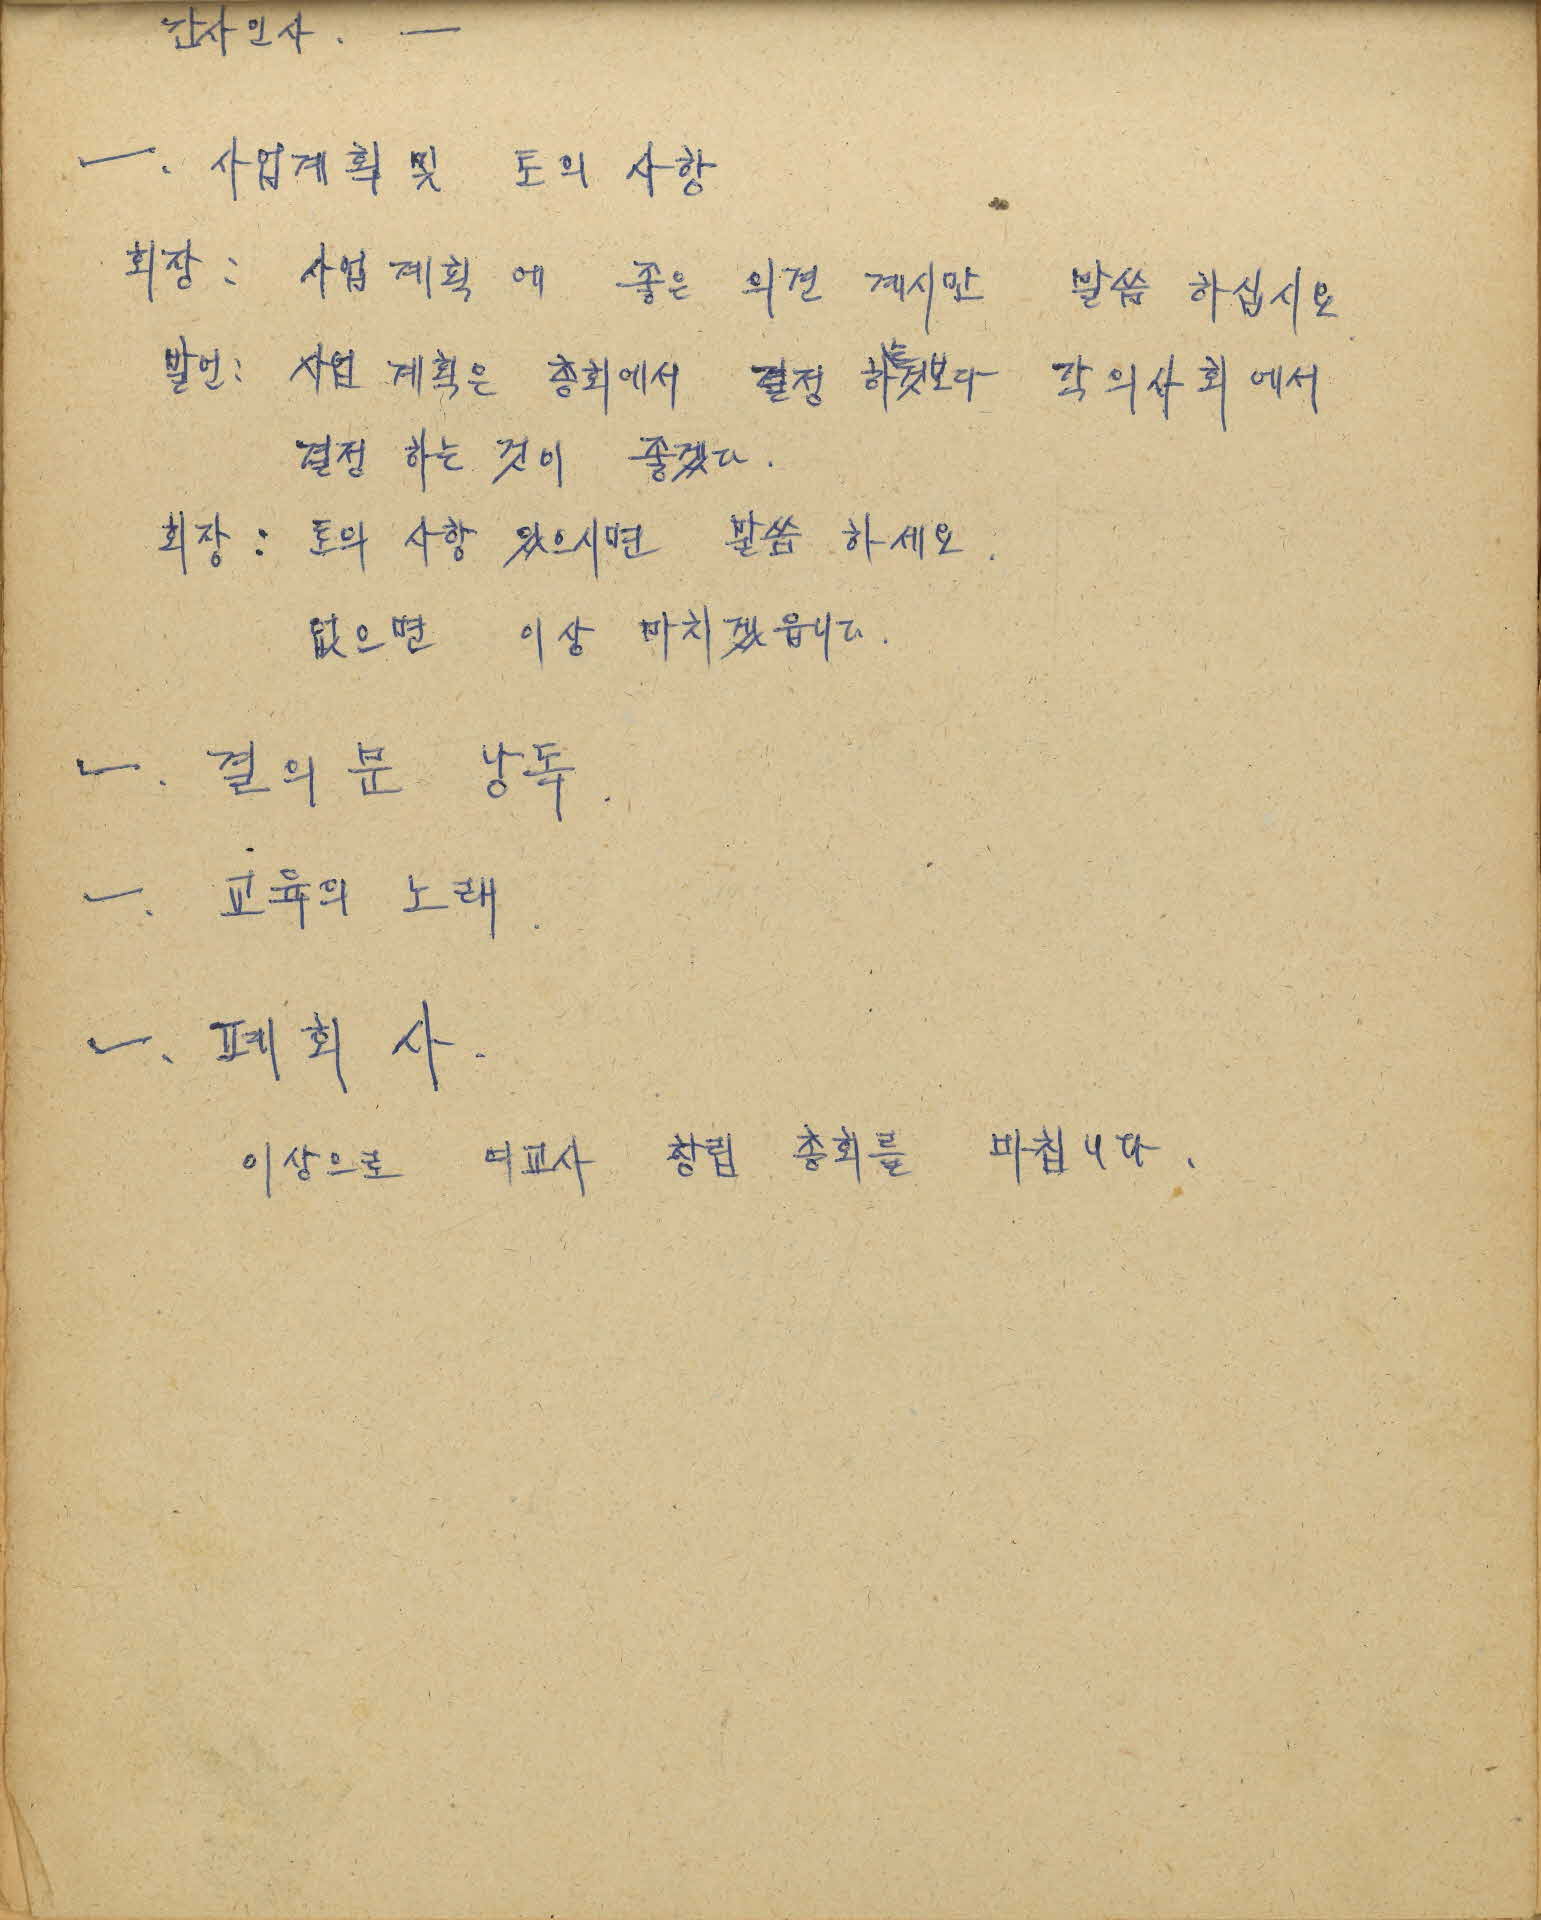 간사인사. —
一. 사업계획 및 토의 사항
회장: 사업계획에 좋은 의견 계시만 말씀 하십시요
발언: 사업 계획은 총회에서 결정 하는것보다 각의사회에서
결정 하는 것이 좋겠다.
회장: 토의 사항 있으시면 말씀 하세요.
없으면 이상 마치겠읍니다.
一. 결의문 낭독.
一. 교육의 노래.
一. 폐회사.
이상으로 여교사 창립 총회를 마칩니다.